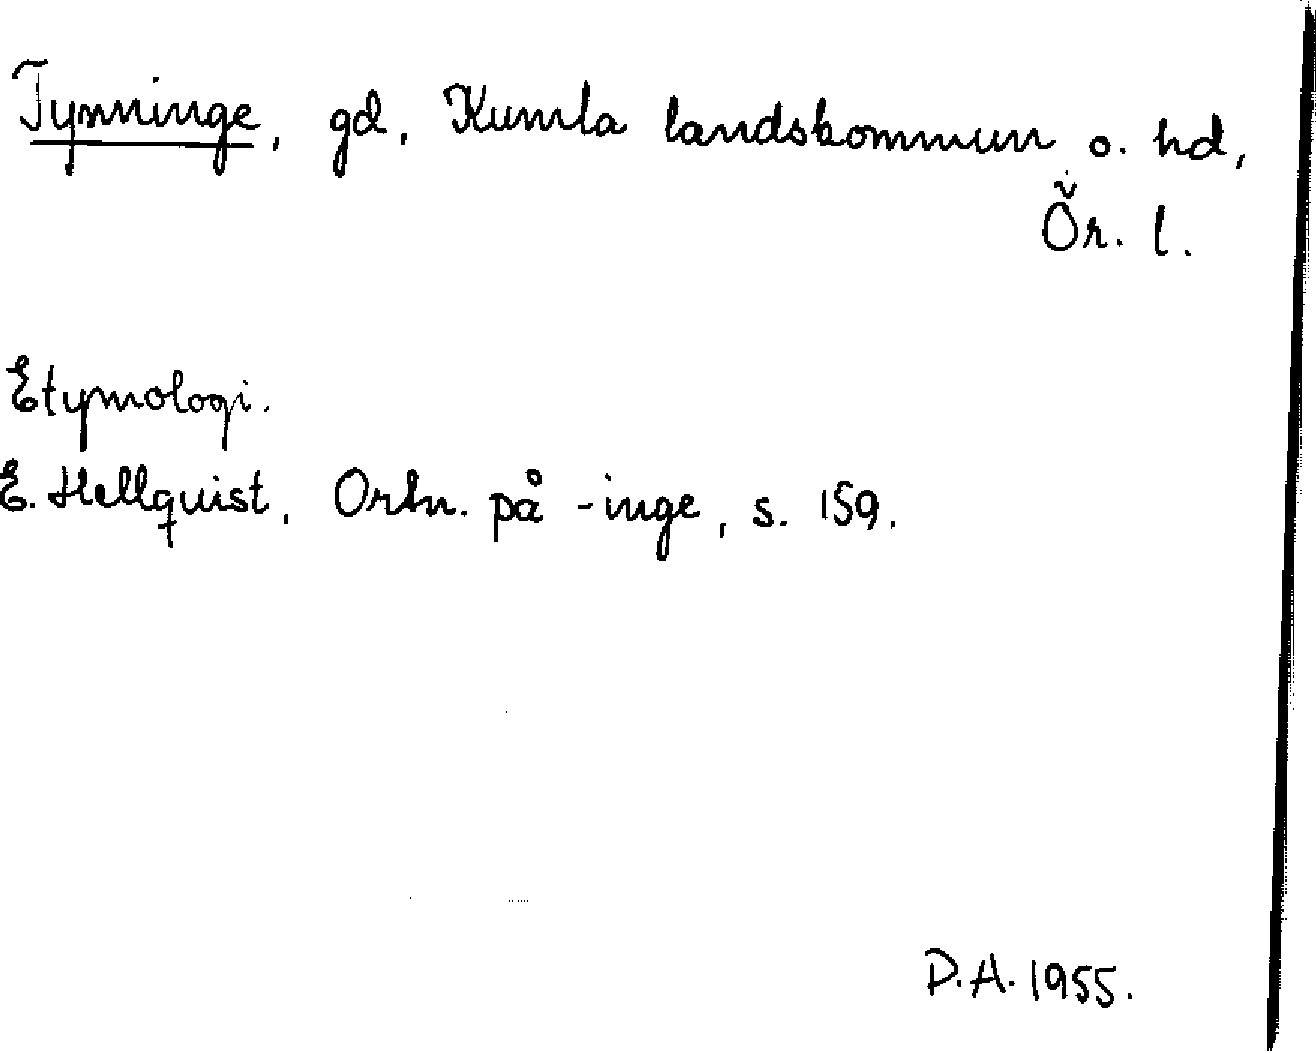 Tynninge, gd, Kumla landskommun o. hd,
Ör. l.
Etymologi.
E. Hellquist, Ortn. på -inge, s. 159.
D.A. 1955.